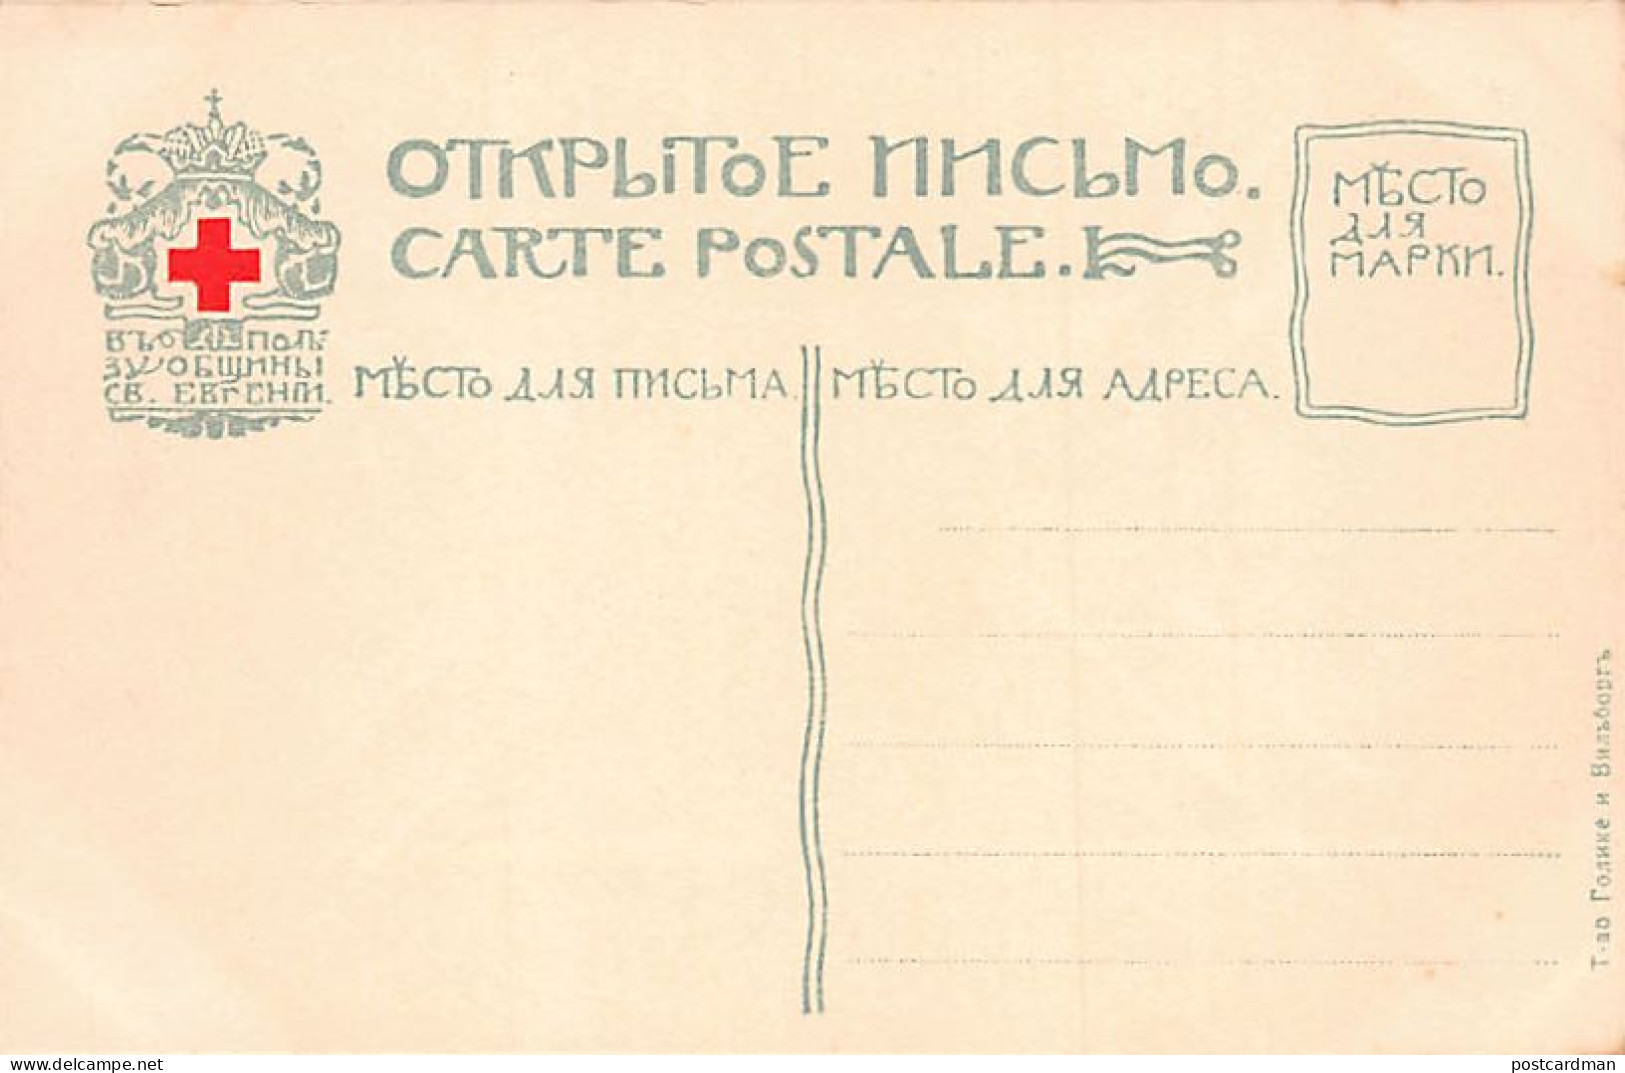 ОТКРЫТОЕ ПИСЬМО.
CARTE POSTALE.
МѢСТО
ДЛЯ
МАРКИ.
ВЪ ПОЛЬ-
ЗУ ОБЩИНЫ
СВ. ЕВГЕНІИ.
МѢСТО ДЛЯ ПИСЬМА.
МѢСТО ДЛЯ АДРЕСА.
Т-во Голике и Вильборгъ
delcampe.net
postcardman